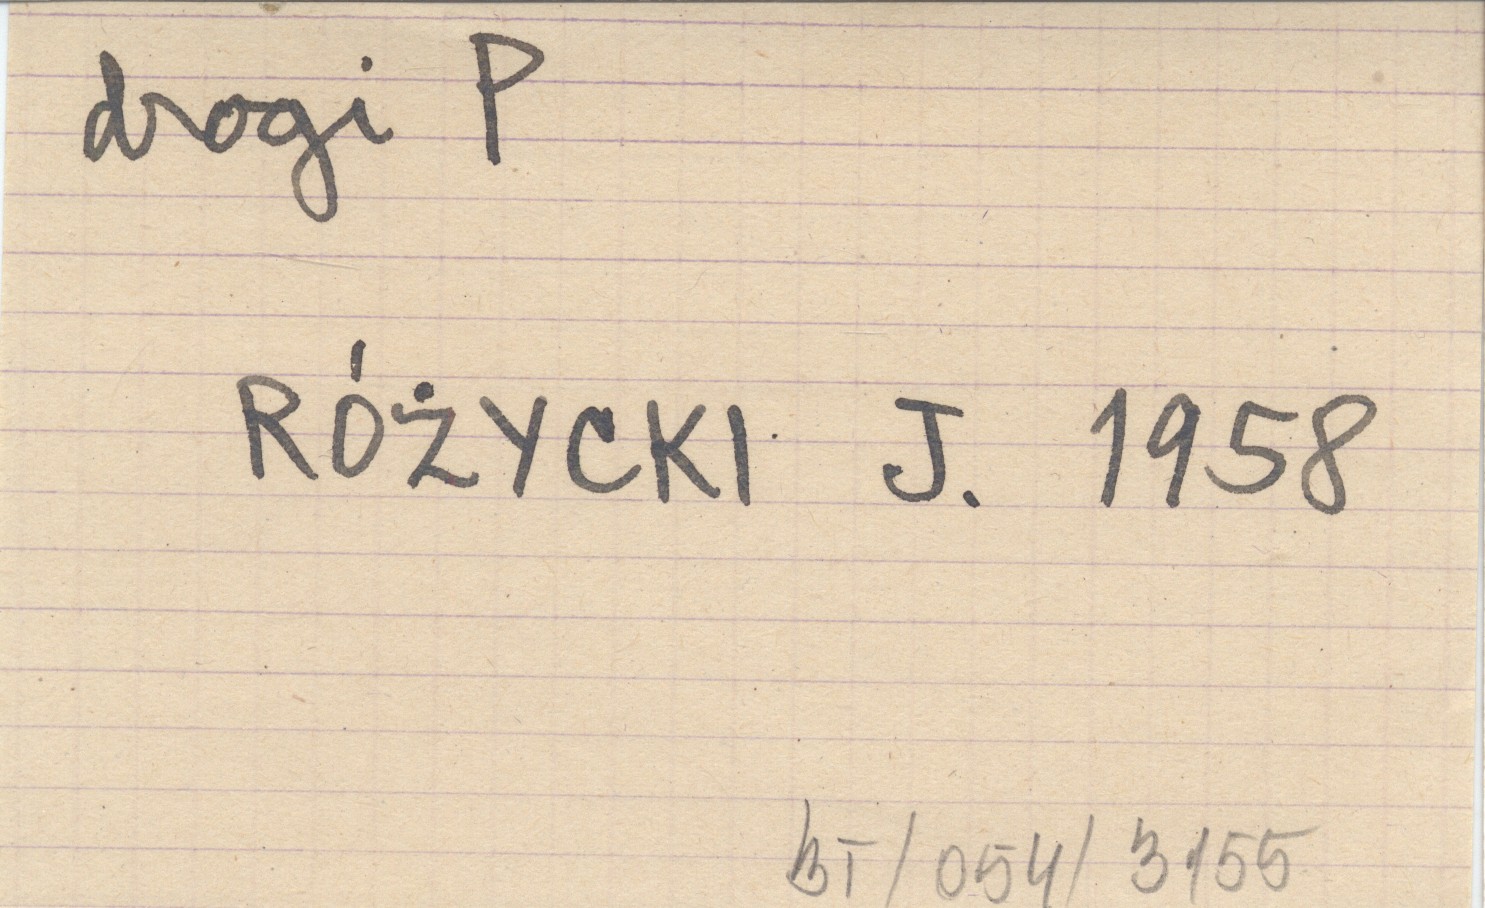 drogi P
RÓŻYCKI J. 1958
BT/054/3155